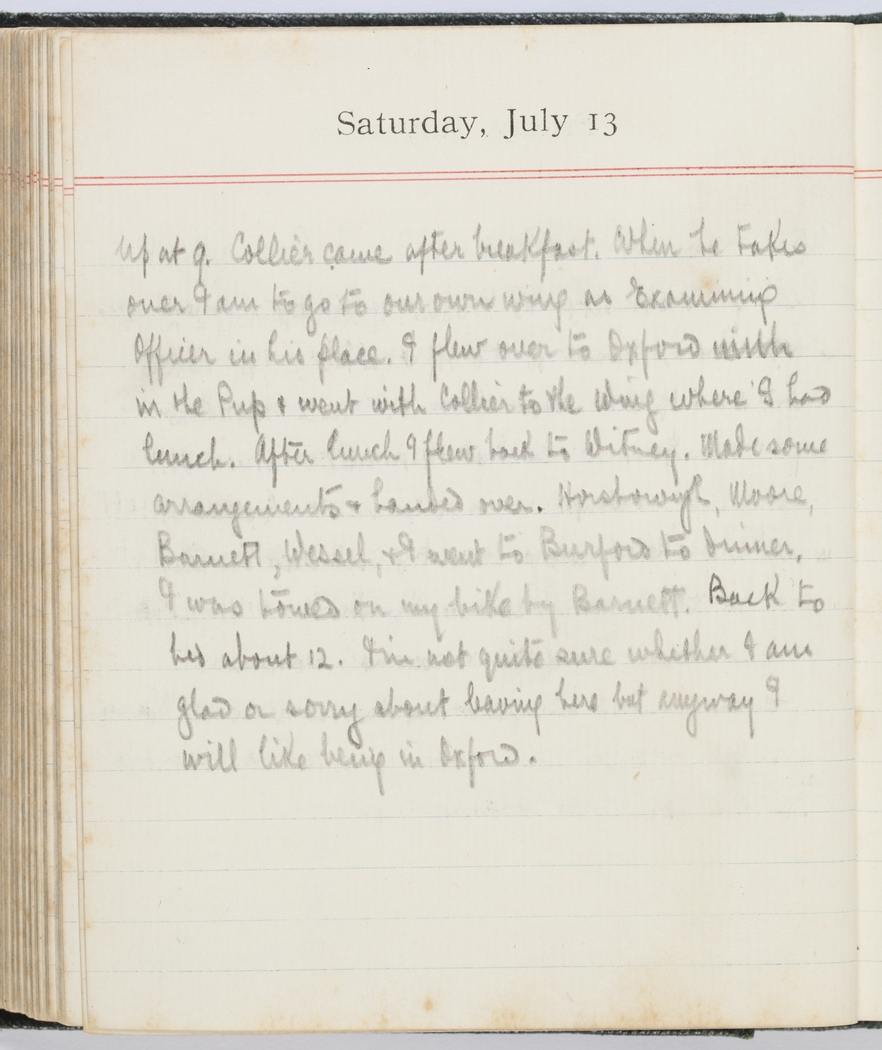 Saturday, July 13
Up at 9. Collier came after breakfast. When he takes
over I am to go to our own wing as Examining
Officer in his place. I flew over to Oxford with
in the Pup & went with Collier to the Wing where I had
lunch. After lunch I flew back to Witney. Made some
arrangements & handed over. Horsborough, Moore,
Barnett, Wessel, & I went to Burford to dinner.
I was towed on my bike by Barnett. Back to
bed about 12. I'm not quite sure whether I am
glad or sorry about leaving here but anyway I
will like being in Oxford.